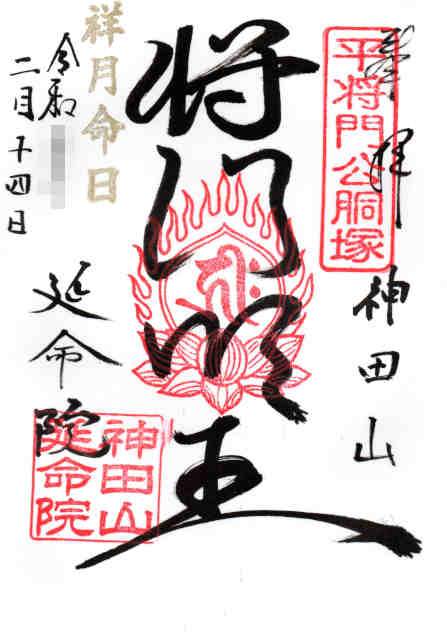 奉拝
平将門公胴塚
神田山
将門明王
祥月命日
令和
二月十四日
延命院
神田山
延命院